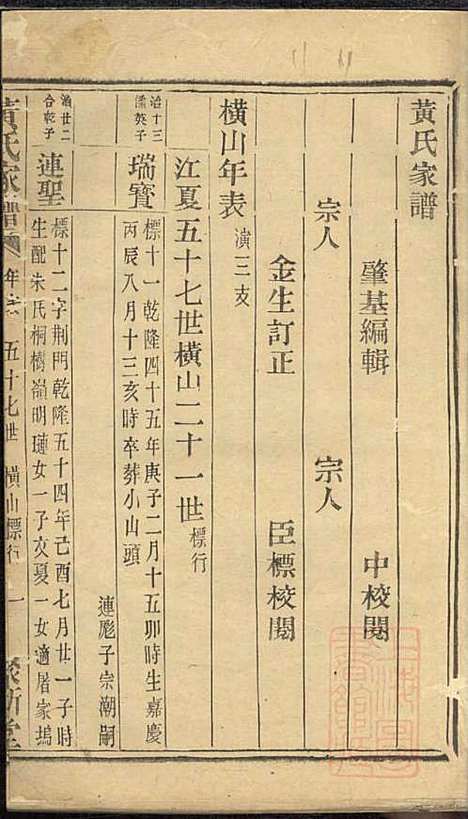 黃氏家譜
肇基編輯 中校閱
宗人 宗人
金生訂正 臣標校閱
橫山年表 演三支
江夏五十七世橫山二十一世 標行
治十三 儒英子
瑞寶 標十一乾隆四十五年庚子二月十五卯時生嘉慶
丙辰八月十三亥時卒葬小山頭 連彪子宗潮嗣
治廿二 合乾子
連聖 標十二字荆門乾隆五十四年己酉七月廿一子時
生配朱氏桐樹嶺明璉女一子文夏一女適屠家塢
黃氏家譜 年 五十七世 橫山標行 一